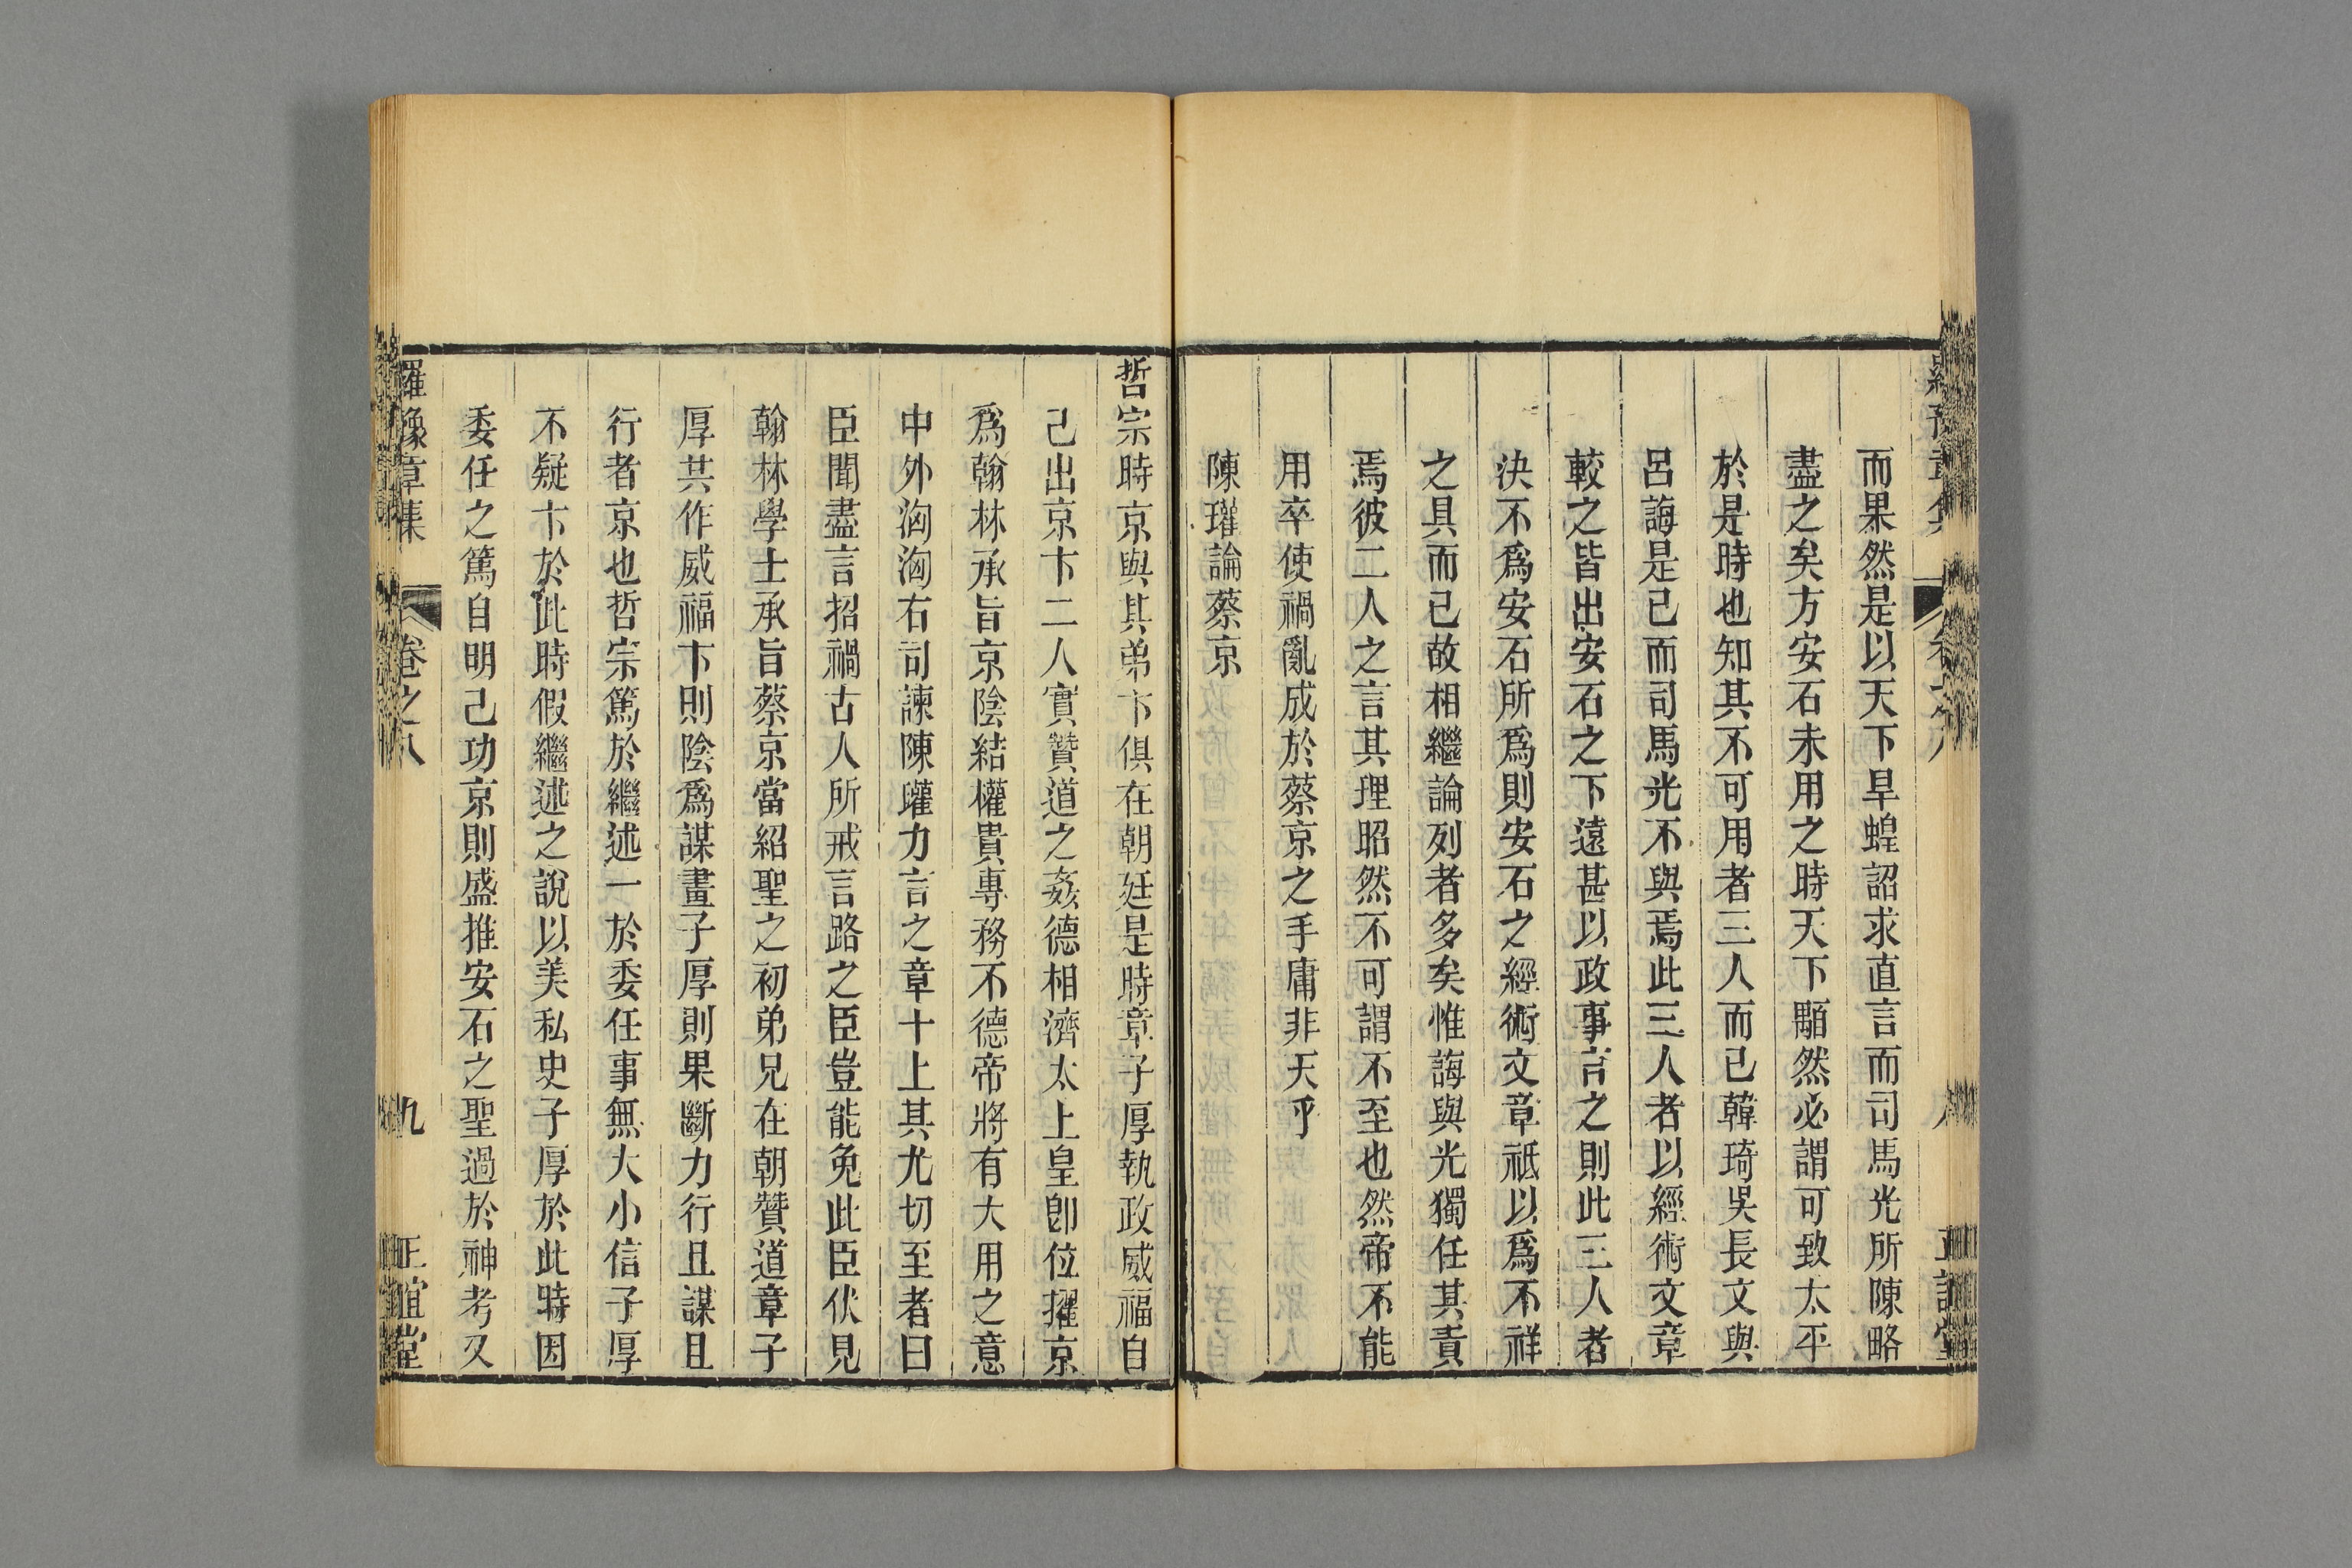 而果然是以天下旱蝗詔求直言而司馬光所陳略
盡之矣方安石未用之時天下顒然必謂可致太平
於是時也知其不可用者三人而已韓琦吳長文與
呂誨是已而司馬光不與焉此三人者以經術文章
較之皆出安石之下遠甚以政事言之則此三人者
決不爲安石所爲則安石之經術文章祗以爲不祥
之具而已故相繼論列者多矣惟誨與光獨任其責
焉彼二人之言其理昭然不可謂不至也然帝不能
用卒使禍亂成於蔡京之手庸非天乎
陳瓘論蔡京
哲宗時京與其弟卞俱在朝廷是時章子厚執政威福自
己出京卞二人實贊道之姦德相濟太上皇卽位擢京
爲翰林承旨京陰結權貴專務不德帝將有大用之意
中外洶洶右司諫陳瓘力言之章十上其尤切至者曰
臣聞盡言招禍古人所戒言路之臣豈能免此臣伏見
翰林學士承旨蔡京當紹聖之初弟兄在朝贊道章子
厚共作威福卞則陰爲謀畫子厚則果斷力行且謀且
行者京也哲宗篤於繼述一於委任事無大小信子厚
不疑卞於此時假繼述之說以美私史子厚於此時因
委任之篤自明己功京則盛推安石之聖過於神考又
羅豫章集
卷之八
九
正誼堂